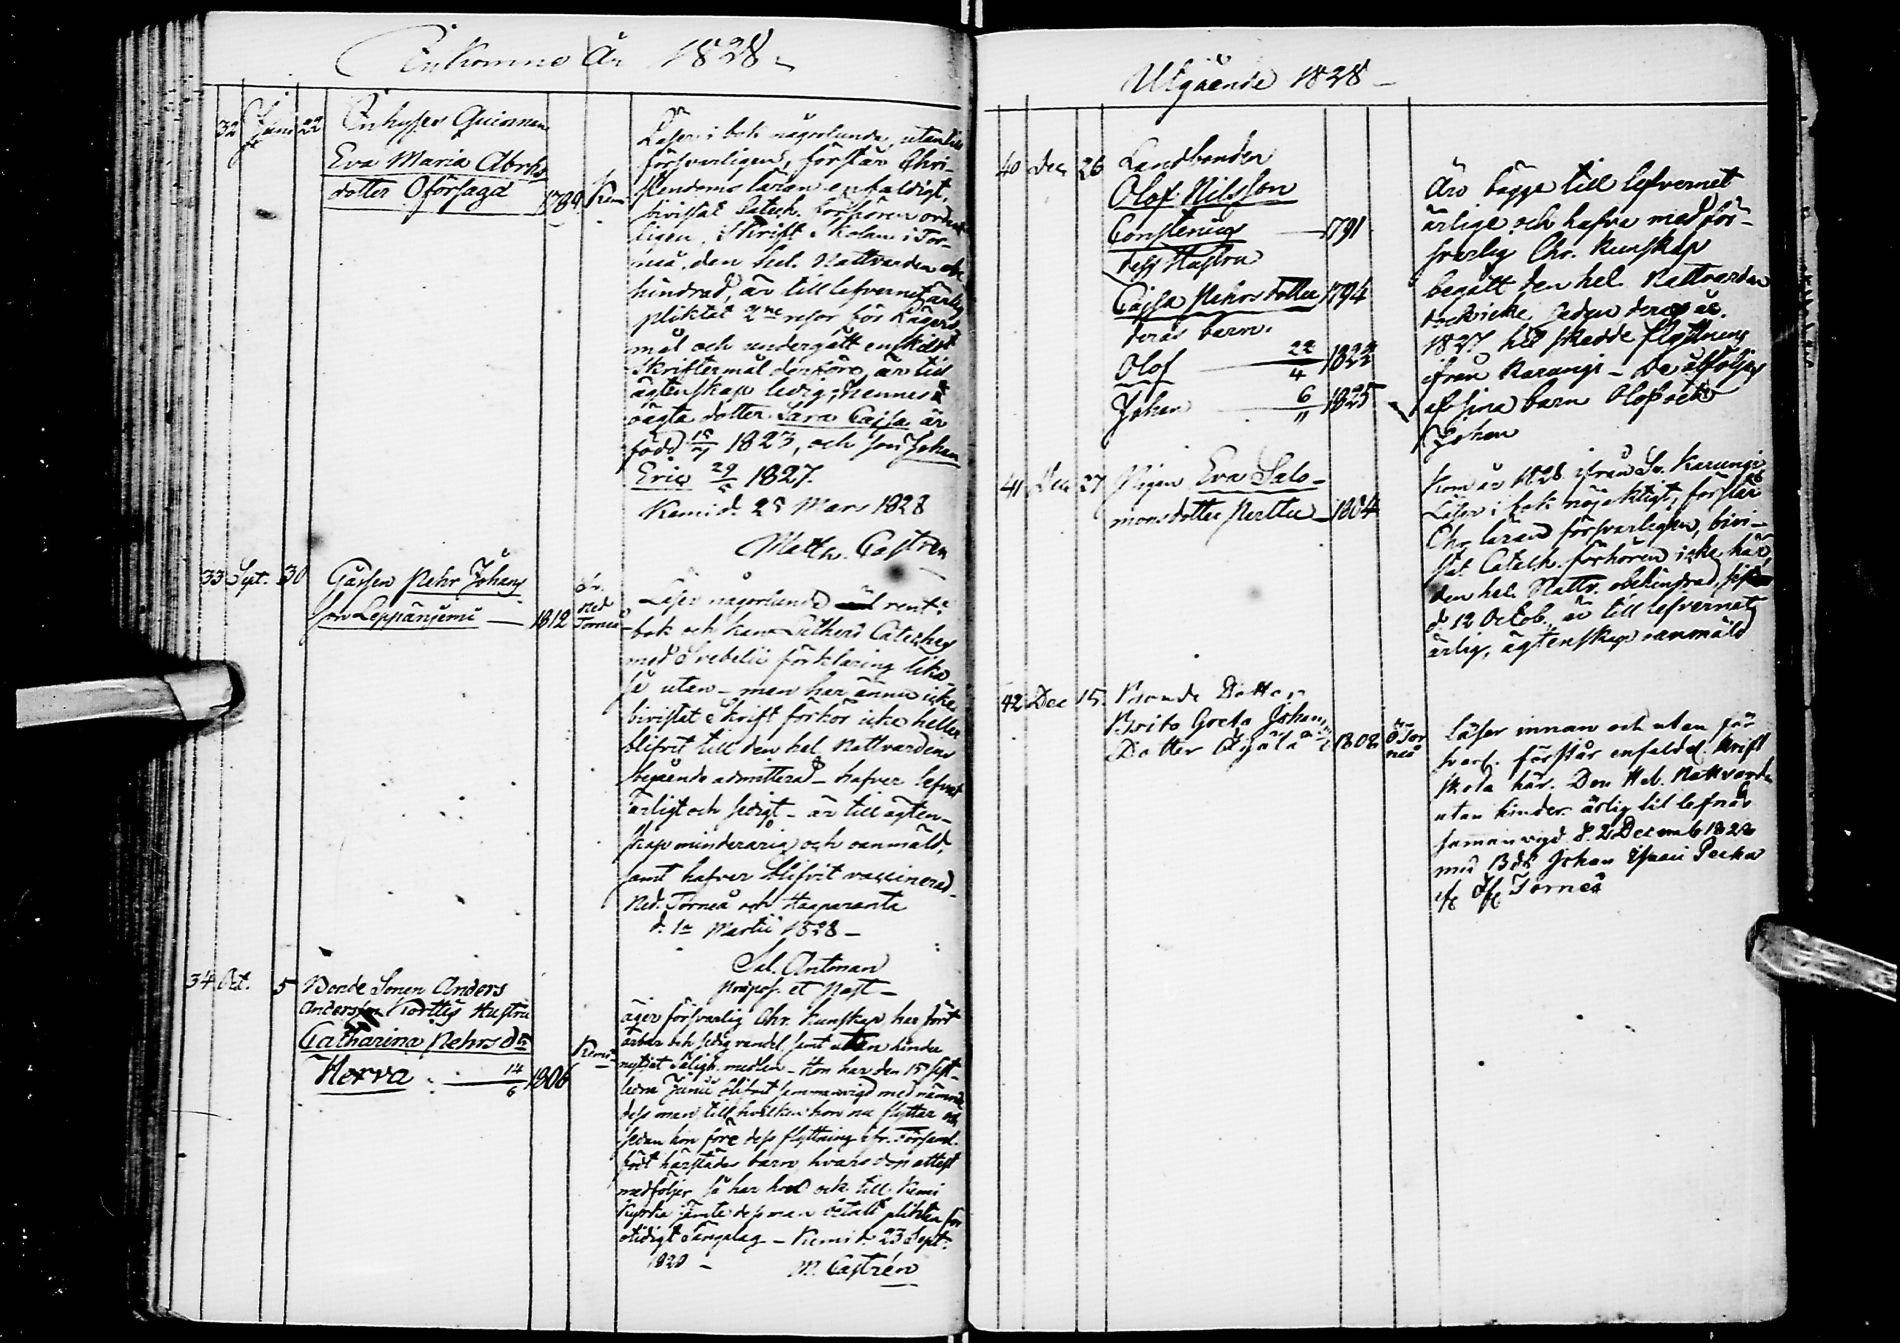 Inkomne År 1828
32 Juni 22 Inhyses Quinnan
Eva Maria Abrhs
dotter Oförsagd 1789 Kemi
Läser i bok någorlunda, utantill
försvarligen, förstår Chri-
stendoms läran enfaldigt,
bivistat Catech. förhören ordent
ligen, Skrift Skolan i Tor-
neå, den hel. Nattvarden
hindrad, är till lefvernet ärlig
pliktat 2ne resor för Lägers-
mål och undergått enskildt
Skriftermål derföre, är till
ägtenskap ledig, hennes
oägta dotter Sara Cajsa är
född 15 1823, och son Johan
Eric 29/5 1827.
Kemi d. 25 Mars 1828
Math. Castrén
33 Sept. 30 Gåssen Pehr Johans
son Leppäniemi — 1812 Sv.
Ned
Torneå
Läser någorlunda rent i
bok och kan Lutheri Cateches
med Svebelii förklaring lika-
så utan – men har ännu icke
bivistat Skrift förhör icke heller
blifvit till den hel. Nattvardens
begående admitterad – hafver lefvat
ärligt och sedigt – är till ägten-
skap minderårig och oanmäld,
samt hafver blifvit vaccinerad.
Ned. Torneå och Haaparanta
d. 1a Martii 1828 —
Sal. Antman
præpos. et Past —
34 Oct. 5 Bonde Sonen Anders
Andersson Korttis Hustru
Catharina Pehrs dr
Herva 14/6 1806 Kemi
äger försvarlig Chr. Kunskap, har fört
ärbar och sedig vandel, samt utan hinder
nyttjat Salighs. medlen – Hon har den 15 sist-
ledne Junii blifvit sammanvigd med nämnde
dess man till hvilken hon nu flyttar och
sedan hon före dess flyttning ifr. Församl.
födt härstädes barn, hvars dop attest
medföljer så har hon ock till Kemi
Kyrka jämte dess man betalt plikten för
otidigt Sänglag – Kemi d. 23 Sept.
1828 — M. Castrén
Utgående 1828 —
40 Dec 26 Landbonden
Olof Nilsson
Constenius — 1791
dess Hustru
Cajsa Pehrs dotter 1794
deras barn.
Olof 22/4 1822
Johan 6/11 1825
Äro bägge till lefvernet
ärlige och hafva med för-
svarlig Chr. Kunskap
begått den hel. Nattvarden
dock icke sedan deras år
1827 hit skedde flyttning
ifrån Karungi – De åtföljas
af sina barn Olof och
Johan
41 Dec 27 Pigan Eva Salo-
monsdotter Perttu — 1804
Kom år 1828 ifrån Sv. Karungi
Läser i bok nöjaktigt, förstår
Chr. läran försvarligen, bivi-
stat Catech. förhören icke här
den hel. Nattv. obehindrad, sist
d. 12 Octob., är till lefvernet
ärlig, ägtenskap oanmäld
42 Dec 15. Bonde Dotter
Brita Greta Johans
Dotter 1808 Ö Tor
neå
Läser innan och utan för
svarl. förstår enfaldl. Skrift
skola här. Den Hel. Nattvarden
utan hinder ärlig til lefnad
samanvigd d. 2 Decemb 1828
med Bds. Johan Pecka
Torneå